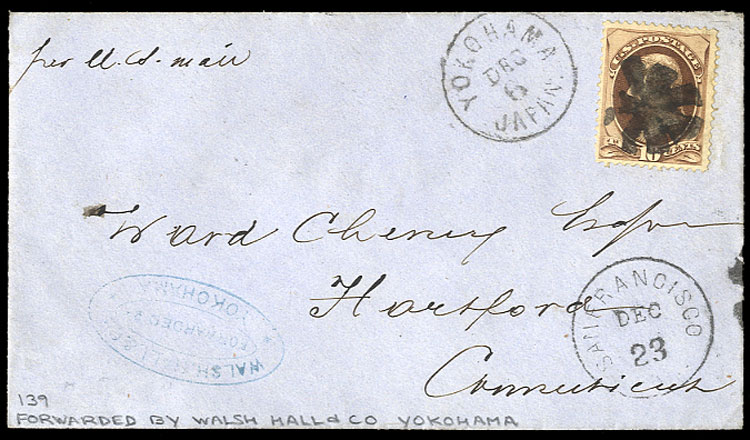 per U. S. mail
YOKOHAMA
DEC
6
JAPAN
U.S. POSTAGE
10 CENTS
Ward Cheney Esqr
Hartford
Connecticut
SAN FRANCISCO
DEC
23
WALSH HALL & CO
FORWARDED BY
YOKOHAMA
139
FORWARDED BY WALSH HALL & CO YOKOHAMA